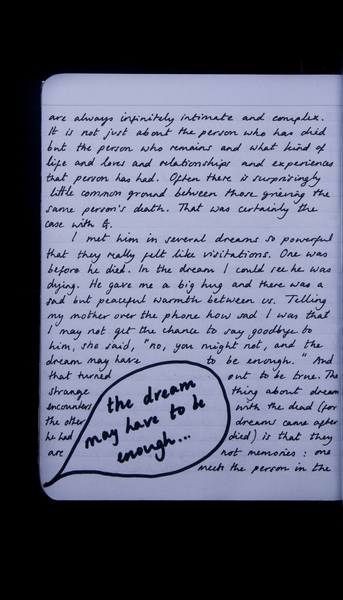 are always infinitely intimate and complex.
It is not just about the person who has died
but the person who remains and what kind of
life and loves and relationships and experiences
that person has had. Often there is surprisingly
little common ground between those grieving the
same person's death. That was certainly the
case with G.
I met him in several dreams so powerful
that they really felt like visitations. One was
before he died. In the dream I could see he was
dying. He gave me a big hug and there was a
sad but peaceful warmth between us. Telling
my mother over the phone how sad I was that
I may not get the chance to say goodbye to
him, she said, "no, you might not, and the
dream may have to be enough." And
that turned out to be true. The
strange thing about dream
encounters with the dead (for
the other dreams came after
he had died) is that they
are not memories: one
meets the person in the
the dream
may have to be
enough...